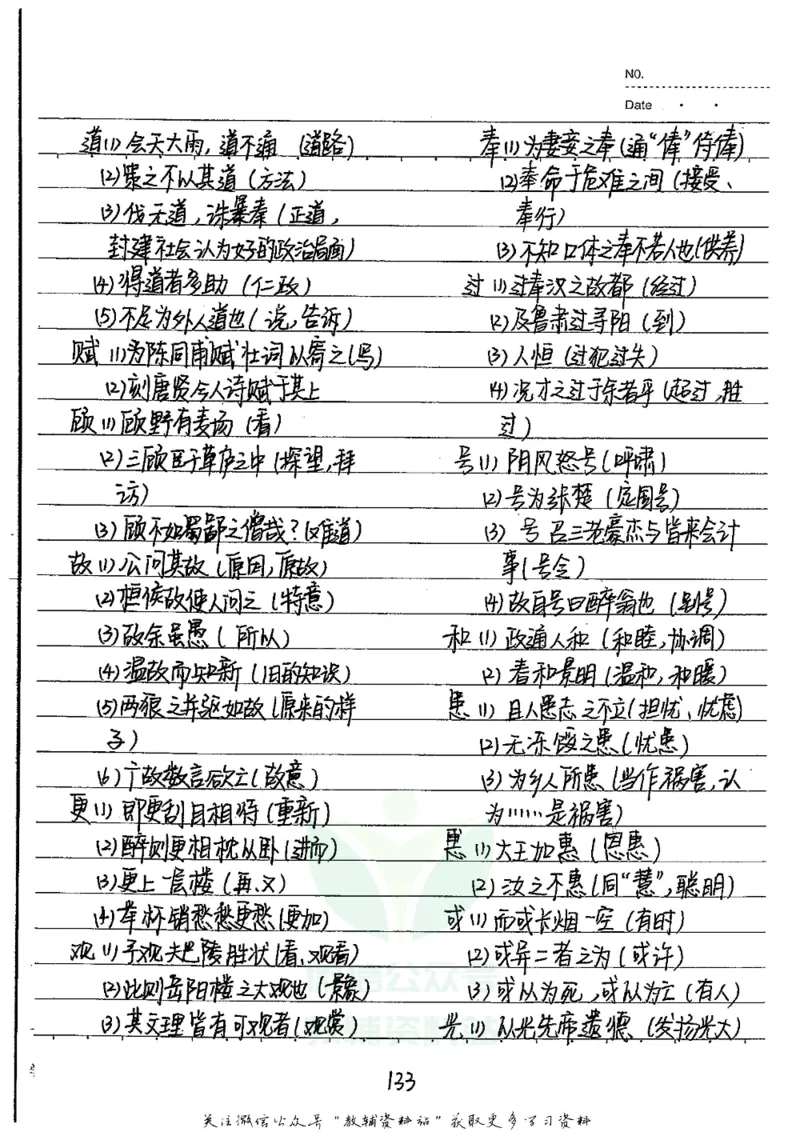 NO.
Date
道(1)会天大雨,道不通 (道路)
(2)策之不以其道(方法)
(3)伐无道,诛暴秦(正道,
封建社会认为好的政治局面)
(4)得道者多助 (仁政)
(5)不足为外人道也(说,告诉)
赋 (1)为陈同甫赋壮词以寄之(写)
(2)刻唐贤今人诗赋于其上
顾(1)顾野有麦场(看)
(2)三顾臣于草庐之中(探望,拜
访)
(3)顾不如蜀鄙之僧哉?(难道)
故(1)公问其故(原因,原故)
(2)桓侯故使人问之(特意)
(3)故余虽愚(所以)
(4)温故而知新(旧的知识)
(5)两狼之并驱如故(原来的样
子)
(6)广故数言欲亡(故意)
更(1)即更刮目相待(重新)
(2)醉则更相枕以卧(进而)
(3)更上一层楼(再、又)
(4)举杯销愁愁更愁(更加)
观(1)予观夫巴陵胜状(看、观看)
(2)此则岳阳楼之大观也(景象)
(3)其文理皆有可观者(观赏)
奉(1)为妻妾之奉(通“俸”俸)
(2)奉命于危难之间(接受、
奉行)
(3)不知口体之奉不若人也(供养)
过(1)过秦汉之故都(经过)
(2)及鲁肃过寻阳(到)
(3)人恒(过犯过失)
(4)况才之过于余者乎(超过,胜
过)
号(1)阴风怒号(呼啸)
(2)号为张楚(定国号)
(3)号召三老豪杰与皆来会计
事(号令)
(4)故自号曰醉翁也(别号)
和(1)政通人和(和睦,协调)
(2)春和景明(温和,和暖)
患(1)且人患志之不立(担忧、忧虑)
(2)无冻馁之患(忧患)
(3)为乡人所患(当作祸害,认
为……是祸害)
惠(1)大王加惠(恩惠)
(2)汝之不惠(同“慧”,聪明)
或(1)而或长烟一空(有时)
(2)或异二者之为(或许)
(3)或以为死,或以为亡(有人)
光(1)以光先帝遗德(发扬光大)
133
关注微信公众号“教辅资料站”获取更多学习资料